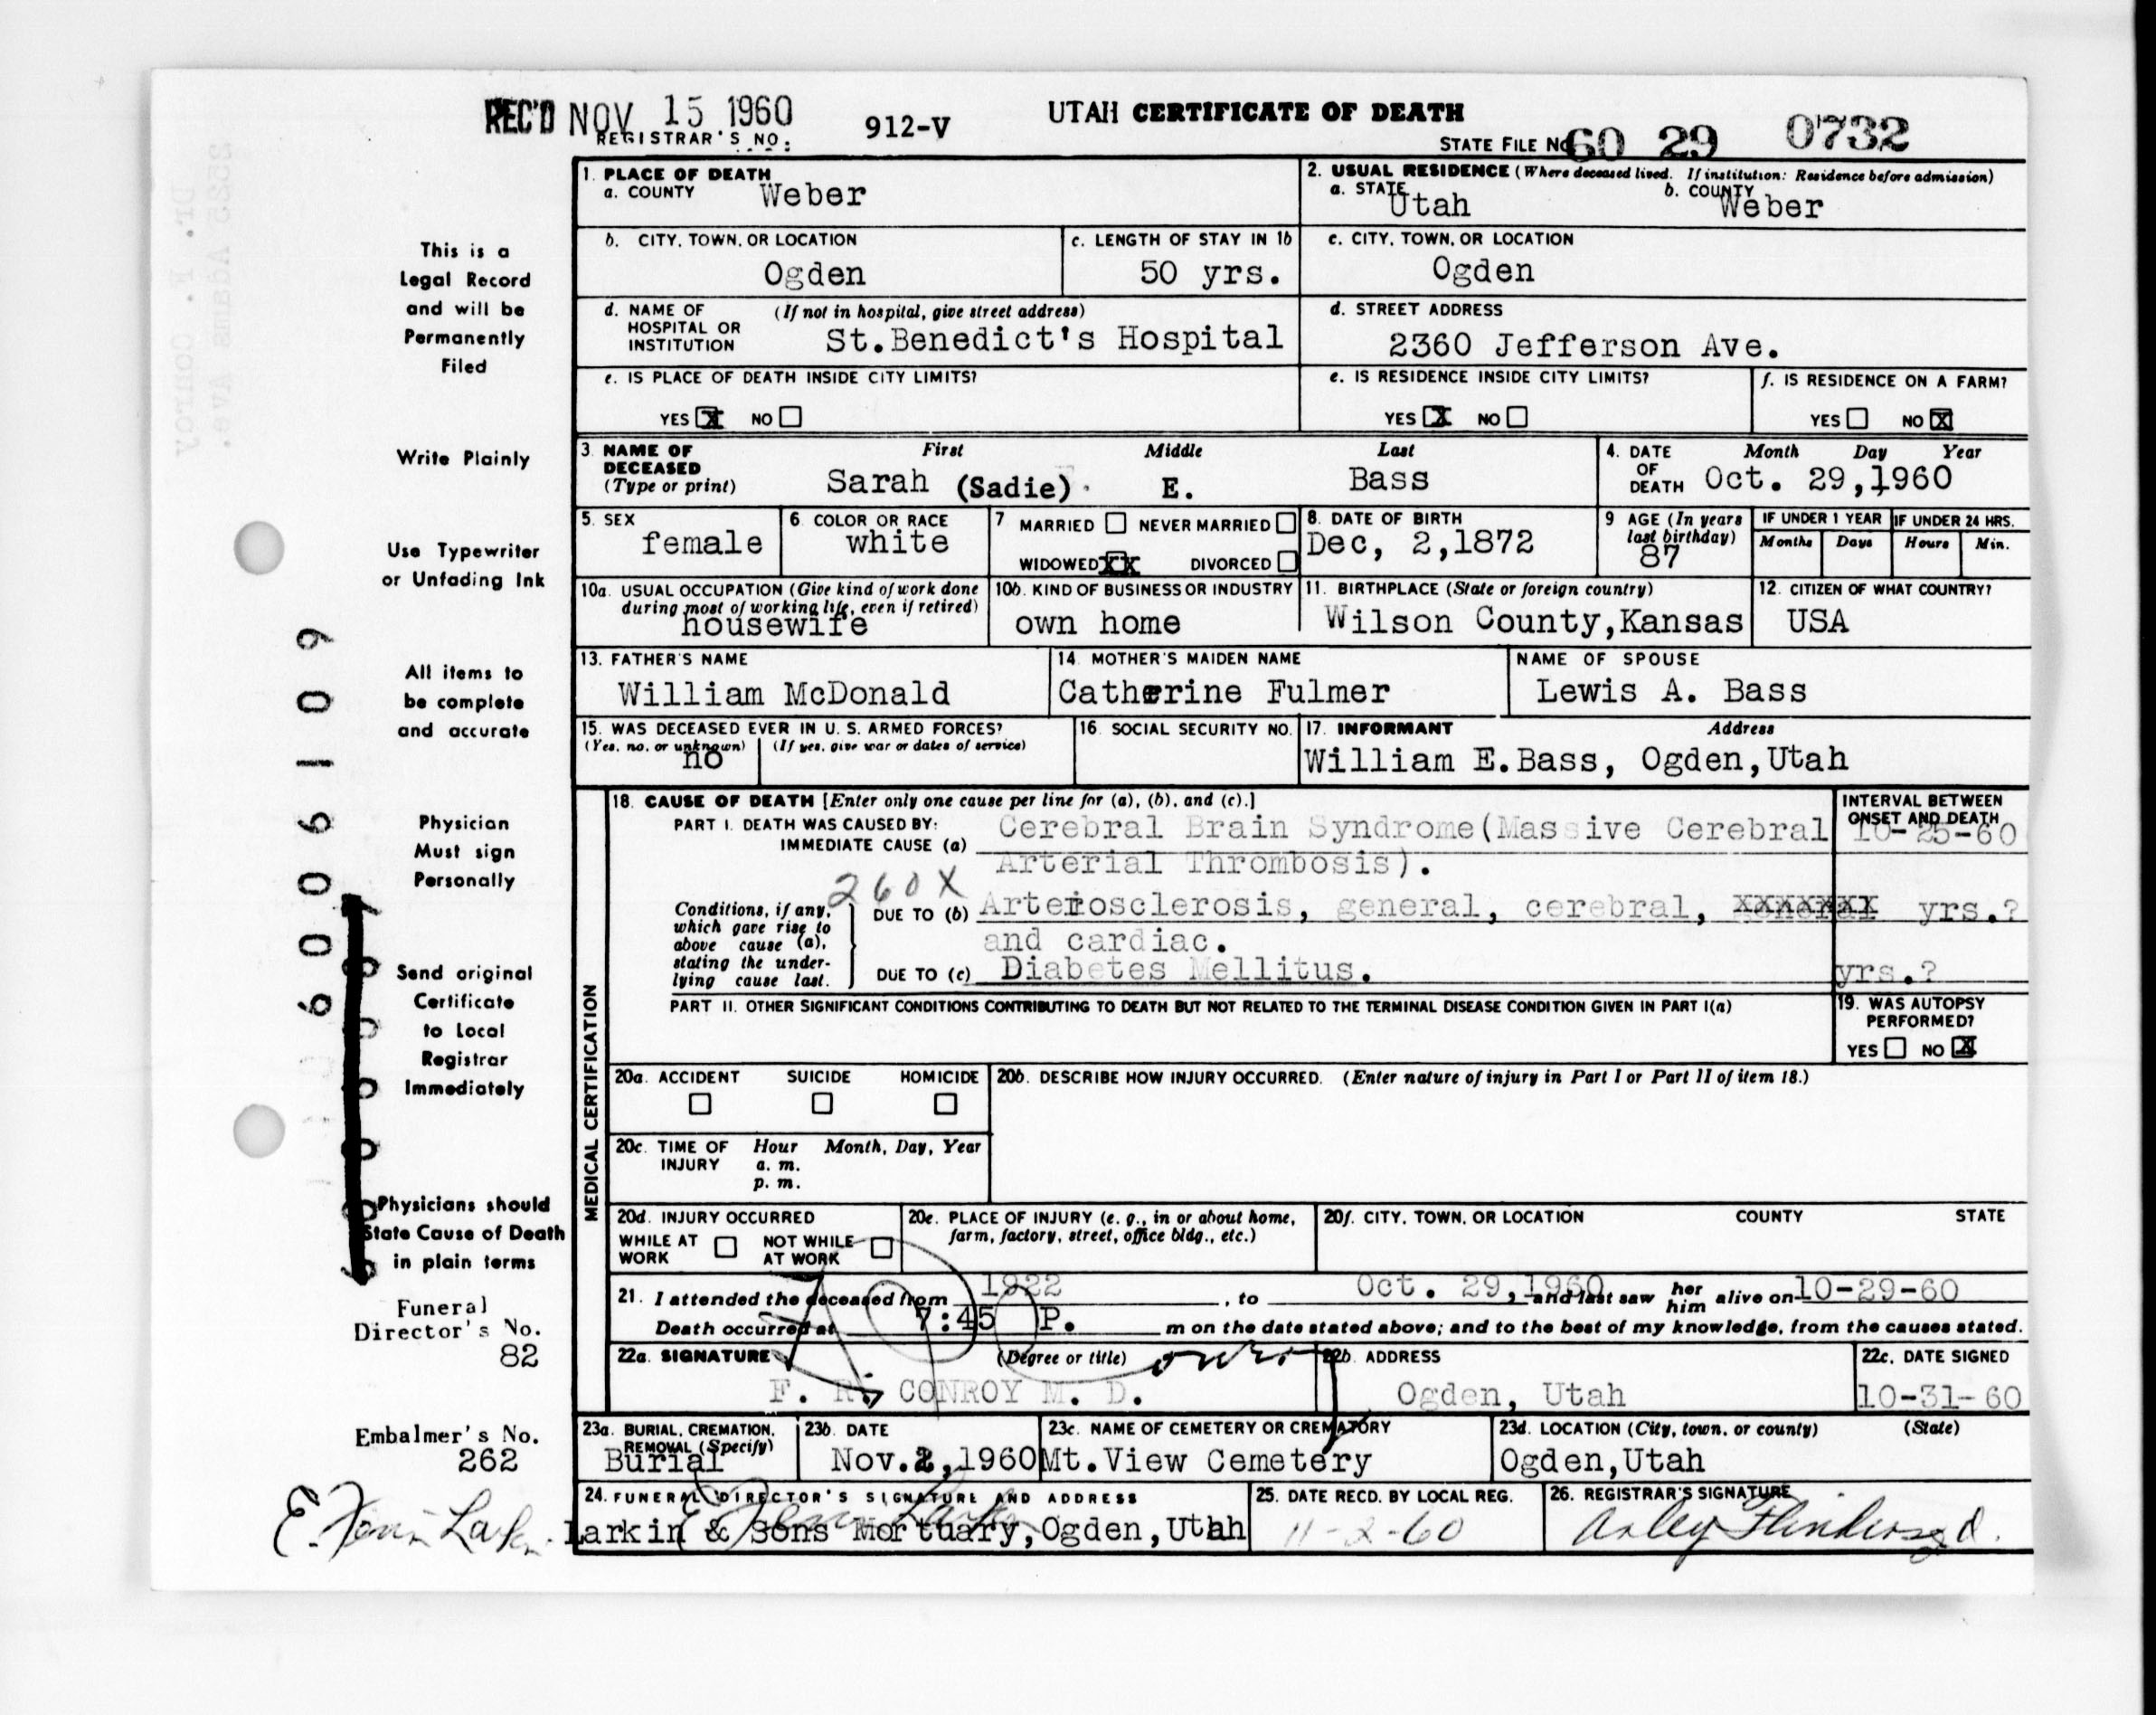 REC'D NOV 15 1960
REGISTRAR'S NO. 912-V
UTAH CERTIFICATE OF DEATH
STATE FILE NO. 60 29 0732
1. PLACE OF DEATH
a. COUNTY Weber
2. USUAL RESIDENCE (Where deceased lived. If institution: Residence before admission)
a. STATE Utah b. COUNTY Weber
b. CITY, TOWN, OR LOCATION
Ogden
c. LENGTH OF STAY IN 1b
50 yrs.
c. CITY, TOWN, OR LOCATION
Ogden
d. NAME OF HOSPITAL OR INSTITUTION (If not in hospital, give street address)
St.Benedict's Hospital
d. STREET ADDRESS
2360 Jefferson Ave.
e. IS PLACE OF DEATH INSIDE CITY LIMITS?
YES X NO
e. IS RESIDENCE INSIDE CITY LIMITS?
YES X NO
f. IS RESIDENCE ON A FARM?
YES NO X
3. NAME OF DECEASED (Type or print)
First Middle Last
Sarah (Sadie) E. Bass
4. DATE OF DEATH Month Day Year
Oct. 29,1960
5. SEX
female
6. COLOR OR RACE
white
7 MARRIED NEVER MARRIED
WIDOWED XX DIVORCED
8. DATE OF BIRTH
Dec, 2,1872
9 AGE (In years last birthday)
87
IF UNDER 1 YEAR IF UNDER 24 HRS.
Months Days Hours Min.
10a. USUAL OCCUPATION (Give kind of work done during most of working life, even if retired)
housewife
10b. KIND OF BUSINESS OR INDUSTRY
own home
11. BIRTHPLACE (State or foreign country)
Wilson County,Kansas
12. CITIZEN OF WHAT COUNTRY?
USA
13. FATHER'S NAME
William McDonald
14. MOTHER'S MAIDEN NAME
Catherine Fulmer
NAME OF SPOUSE
Lewis A. Bass
15. WAS DECEASED EVER IN U. S. ARMED FORCES?
(Yes, no, or unknown) (If yes, give war or dates of service)
no
16. SOCIAL SECURITY NO.
17. INFORMANT Address
William E.Bass, Ogden,Utah
MEDICAL CERTIFICATION
18. CAUSE OF DEATH [Enter only one cause per line for (a), (b), and (c).]
INTERVAL BETWEEN ONSET AND DEATH
PART I. DEATH WAS CAUSED BY:
IMMEDIATE CAUSE (a) Cerebral Brain Syndrome(Massive Cerebral 10-25-60
Arterial Thrombosis).
260X
Conditions, if any, which gave rise to above cause (a), stating the underlying cause last.
DUE TO (b) Arteriosclerosis, general, cerebral, xxxxxxx yrs.?
and cardiac.
DUE TO (c) Diabetes Mellitus. yrs.?
PART II. OTHER SIGNIFICANT CONDITIONS CONTRIBUTING TO DEATH BUT NOT RELATED TO THE TERMINAL DISEASE CONDITION GIVEN IN PART I(a)
19. WAS AUTOPSY PERFORMED?
YES NO X
20a. ACCIDENT SUICIDE HOMICIDE
20b. DESCRIBE HOW INJURY OCCURRED. (Enter nature of injury in Part I or Part II of item 18.)
20c. TIME OF INJURY Hour Month, Day, Year
a. m.
p. m.
20d. INJURY OCCURRED
WHILE AT WORK NOT WHILE AT WORK
20e. PLACE OF INJURY (e. g., in or about home, farm, factory, street, office bldg., etc.)
20f. CITY, TOWN, OR LOCATION COUNTY STATE
21. I attended the deceased from 1922, to Oct. 29,1960 and last saw her him alive on 10-29-60
Death occurred at 7:45 P. m on the date stated above; and to the best of my knowledge, from the causes stated.
22a. SIGNATURE (Degree or title)
F. R. CONROY M. D.
22b. ADDRESS
Ogden, Utah
22c. DATE SIGNED
10-31-60
23a. BURIAL, CREMATION, REMOVAL (Specify)
Burial
23b. DATE
Nov.2,1960
23c. NAME OF CEMETERY OR CREMATORY
Mt.View Cemetery
23d. LOCATION (City, town, or county) (State)
Ogden,Utah
24. FUNERAL DIRECTOR'S SIGNATURE AND ADDRESS
Larkin & Sons Mortuary,Ogden,Utah
25. DATE RECD. BY LOCAL REG.
11-2-60
26. REGISTRAR'S SIGNATURE
This is a
Legal Record
and will be
Permanently
Filed
Write Plainly
Use Typewriter
or Unfading Ink
All items to
be complete
and accurate
Physician
Must sign
Personally
Send original
Certificate
to Local
Registrar
Immediately
Physicians should
State Cause of Death
in plain terms
Funeral
Director's No.
82
Embalmer's No.
262
60061109